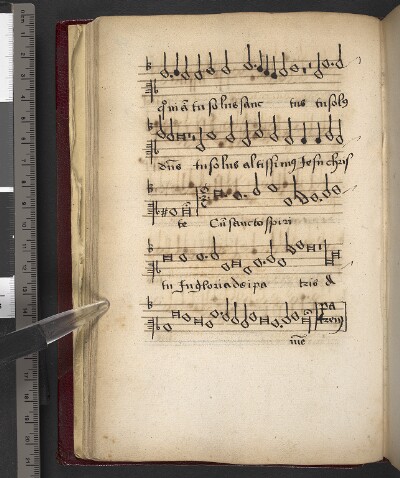 qm̄ā tu solus sanc tus tu solꝰ
dn̄s tu solus altissimꝰ Jesu chris
te Cū sancto spiri
tu In gloria dei pa tris &
Pa
trem
me